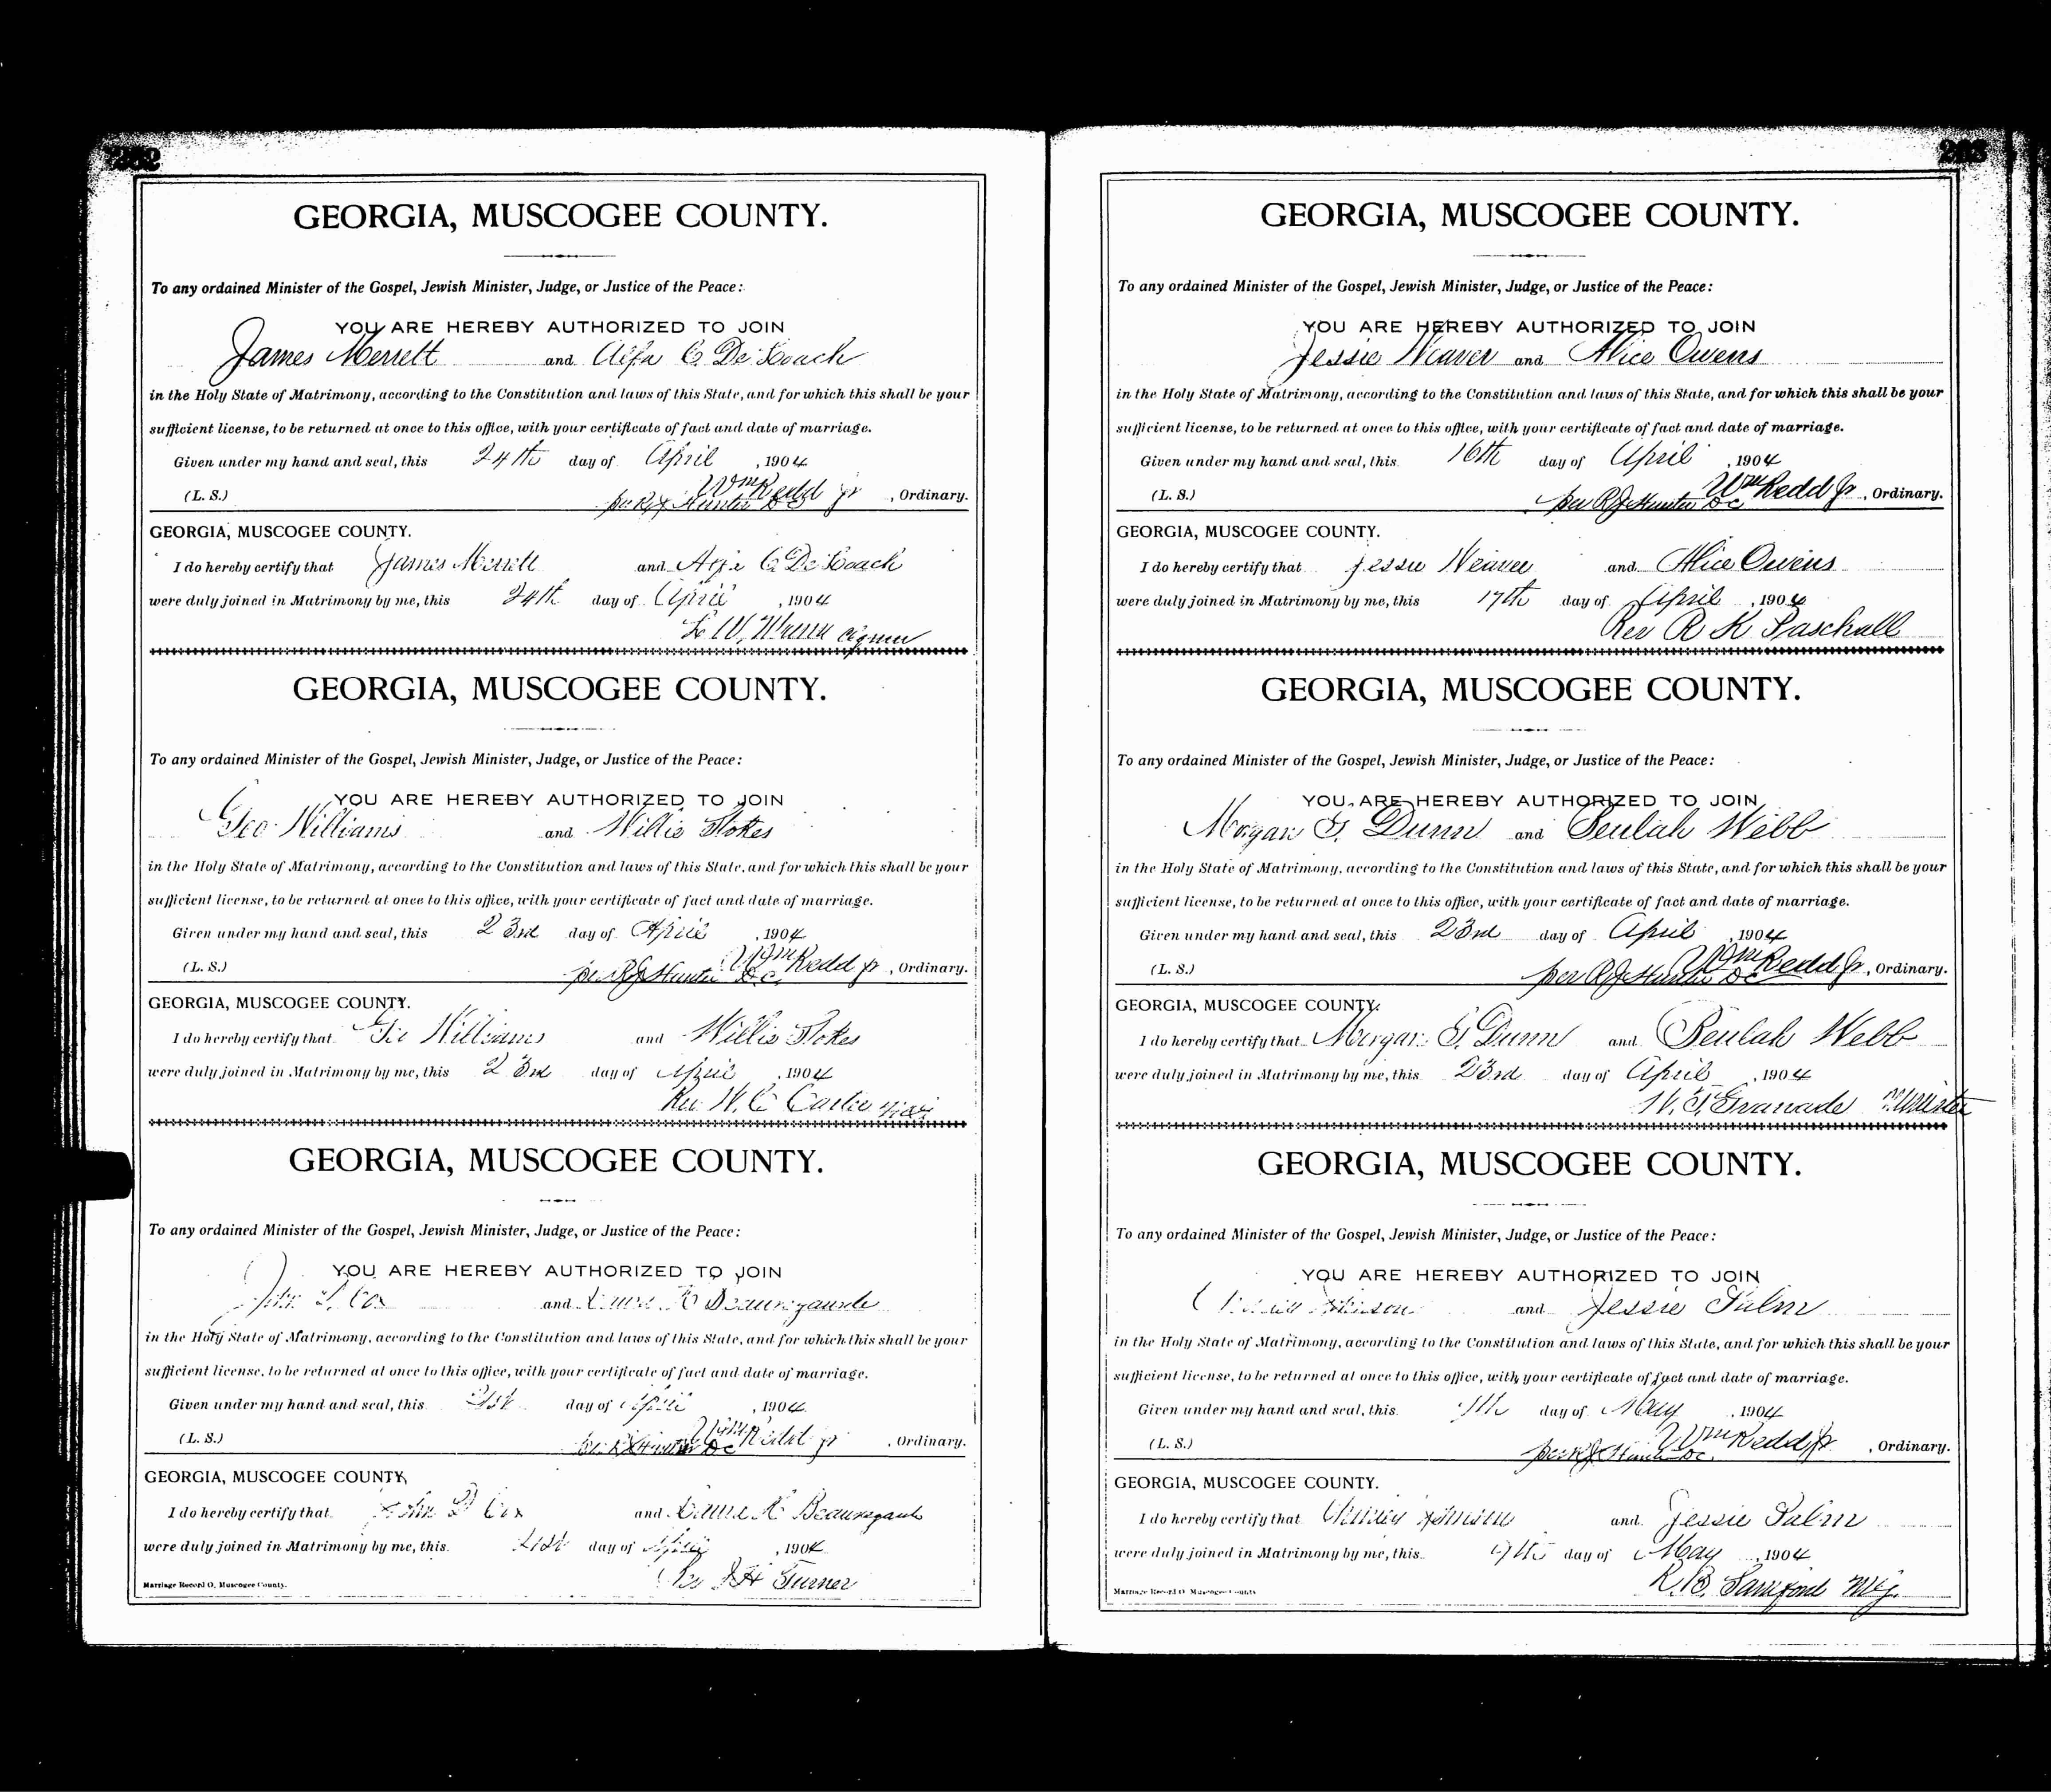 GEORGIA, MUSCOGEE COUNTY.
To any ordained Minister of the Gospel, Jewish Minister, Judge, or Justice of the Peace:
YOU ARE HEREBY AUTHORIZED TO JOIN
James Merrett and C. De Loach
in the Holy State of Matrimony, according to the Constitution and laws of this State, and for which this shall be your
sufficient license, to be returned at once to this office, with your certificate of fact and date of marriage.
Given under my hand and seal, this 24th day of April, 1904
(L. S.) Wm Redd Jr, Ordinary.
per R J Hunter D C
GEORGIA, MUSCOGEE COUNTY.
I do hereby certify that James Merrett and C. De Loach
were duly joined in Matrimony by me, this 24th day of April, 1904
W.
GEORGIA, MUSCOGEE COUNTY.
To any ordained Minister of the Gospel, Jewish Minister, Judge, or Justice of the Peace:
YOU ARE HEREBY AUTHORIZED TO JOIN
Geo Williams and Willie Stokes
in the Holy State of Matrimony, according to the Constitution and laws of this State, and for which this shall be your
sufficient license, to be returned at once to this office, with your certificate of fact and date of marriage.
Given under my hand and seal, this 23rd day of April, 1904
(L. S.) Wm Redd Jr, Ordinary.
per R J Hunter D.C.
GEORGIA, MUSCOGEE COUNTY.
I do hereby certify that Geo Williams and Willie Stokes
were duly joined in Matrimony by me, this 23rd day of April, 1904
Rev W. C. Carter
GEORGIA, MUSCOGEE COUNTY.
To any ordained Minister of the Gospel, Jewish Minister, Judge, or Justice of the Peace:
YOU ARE HEREBY AUTHORIZED TO JOIN
John Cox and Beauregarde
in the Holy State of Matrimony, according to the Constitution and laws of this State, and for which this shall be your
sufficient license, to be returned at once to this office, with your certificate of fact and date of marriage.
Given under my hand and seal, this 21st day of April, 1904
(L. S.) Wm Redd Jr, Ordinary.
per R J Hunter DC
GEORGIA, MUSCOGEE COUNTY,
I do hereby certify that John Cox and Beauregarde
were duly joined in Matrimony by me, this 21st day of April, 1904
Rev J H Turner
Marriage Record O, Muscogee County.
263
GEORGIA, MUSCOGEE COUNTY.
To any ordained Minister of the Gospel, Jewish Minister, Judge, or Justice of the Peace:
YOU ARE HEREBY AUTHORIZED TO JOIN
Jessie Weaver and Alice Owens
in the Holy State of Matrimony, according to the Constitution and laws of this State, and for which this shall be your
sufficient license, to be returned at once to this office, with your certificate of fact and date of marriage.
Given under my hand and seal, this 16th day of April, 1904
(L. S.) Wm Redd Jr, Ordinary.
per R J Hunter DC
GEORGIA, MUSCOGEE COUNTY.
I do hereby certify that Jessie Weaver and Alice Owens
were duly joined in Matrimony by me, this 17th day of April, 1904
Rev R K Paschall
GEORGIA, MUSCOGEE COUNTY.
To any ordained Minister of the Gospel, Jewish Minister, Judge, or Justice of the Peace:
YOU ARE HEREBY AUTHORIZED TO JOIN
Morgan G. Dunn and Beulah Webb
in the Holy State of Matrimony, according to the Constitution and laws of this State, and for which this shall be your
sufficient license, to be returned at once to this office, with your certificate of fact and date of marriage.
Given under my hand and seal, this 23rd day of April, 1904
(L. S.) Wm Redd Jr, Ordinary.
per R J Hunter DC
GEORGIA, MUSCOGEE COUNTY.
I do hereby certify that Morgan G. Dunn and Beulah Webb
were duly joined in Matrimony by me, this 23rd day of April, 1904
Granade Minister
GEORGIA, MUSCOGEE COUNTY.
To any ordained Minister of the Gospel, Jewish Minister, Judge, or Justice of the Peace:
YOU ARE HEREBY AUTHORIZED TO JOIN
and Jessie Palm
in the Holy State of Matrimony, according to the Constitution and laws of this State, and for which this shall be your
sufficient license, to be returned at once to this office, with your certificate of fact and date of marriage.
Given under my hand and seal, this day of May, 1904
(L. S.) Wm Redd Jr, Ordinary.
per R J Hunter DC.
GEORGIA, MUSCOGEE COUNTY.
I do hereby certify that and Jessie Palm
were duly joined in Matrimony by me, this day of May, 1904
R. B.
Marriage Record O Muscogee County